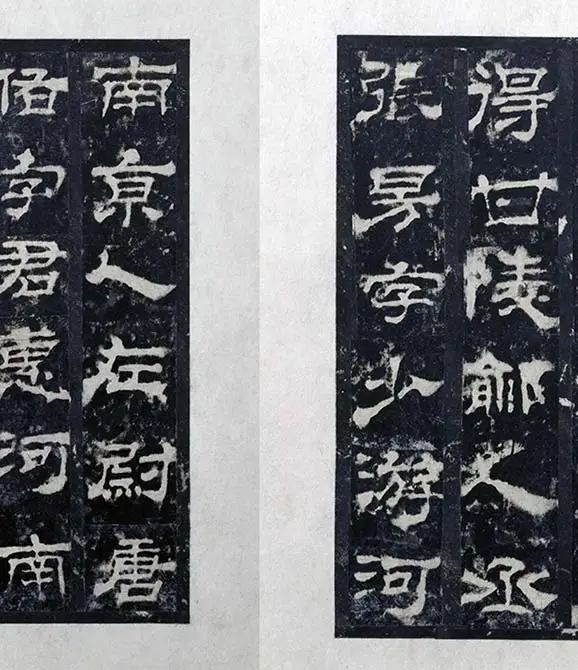 得甘陵鄃人丞
張昉字少游河
南京人左尉唐
佑字君惠河南